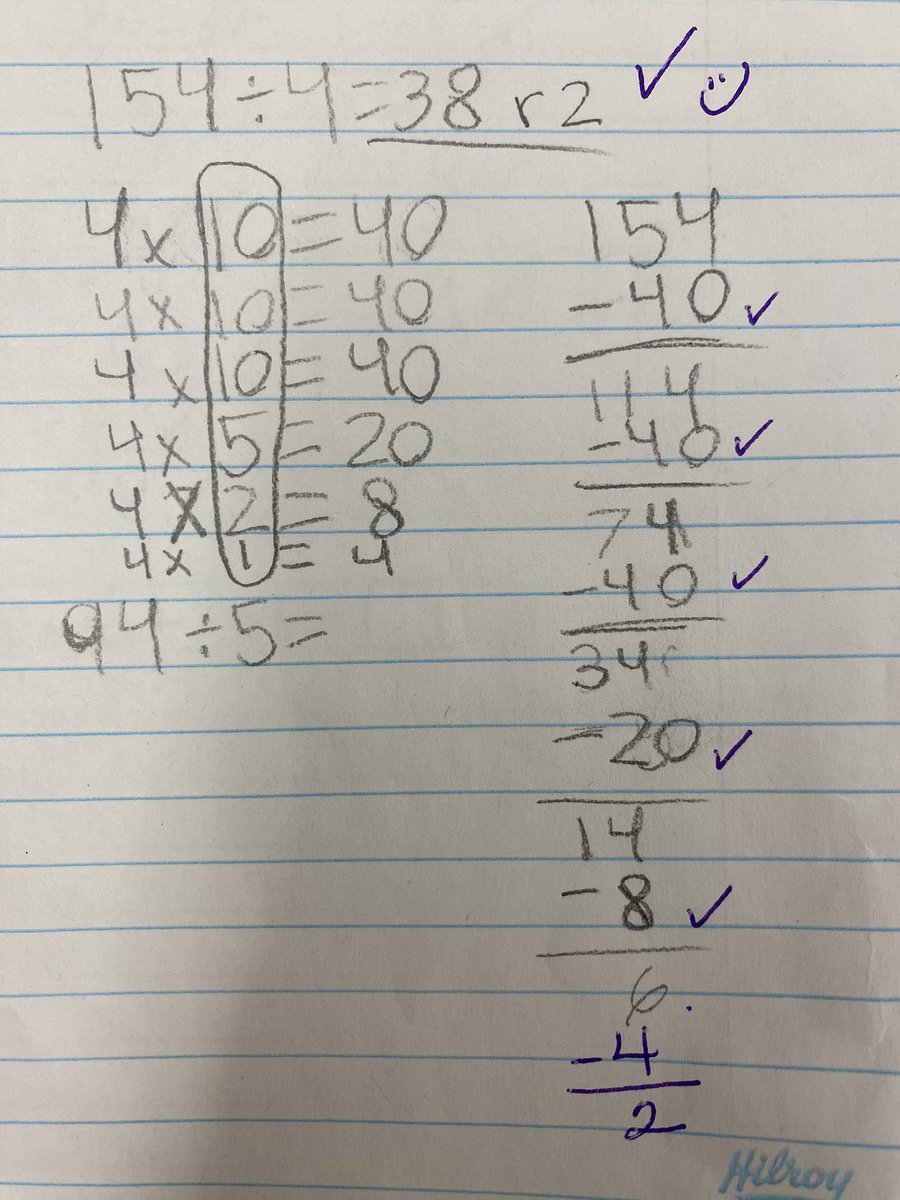 154÷4=38 r2 ✓
4x10=40
4x10=40
4x10=40
4x5=20
4x2=8
4x1=4
94÷5=
154
-40 ✓
114
-40 ✓
74
-40 ✓
34
-20 ✓
14
-8 ✓
6
-4
2
Hilroy